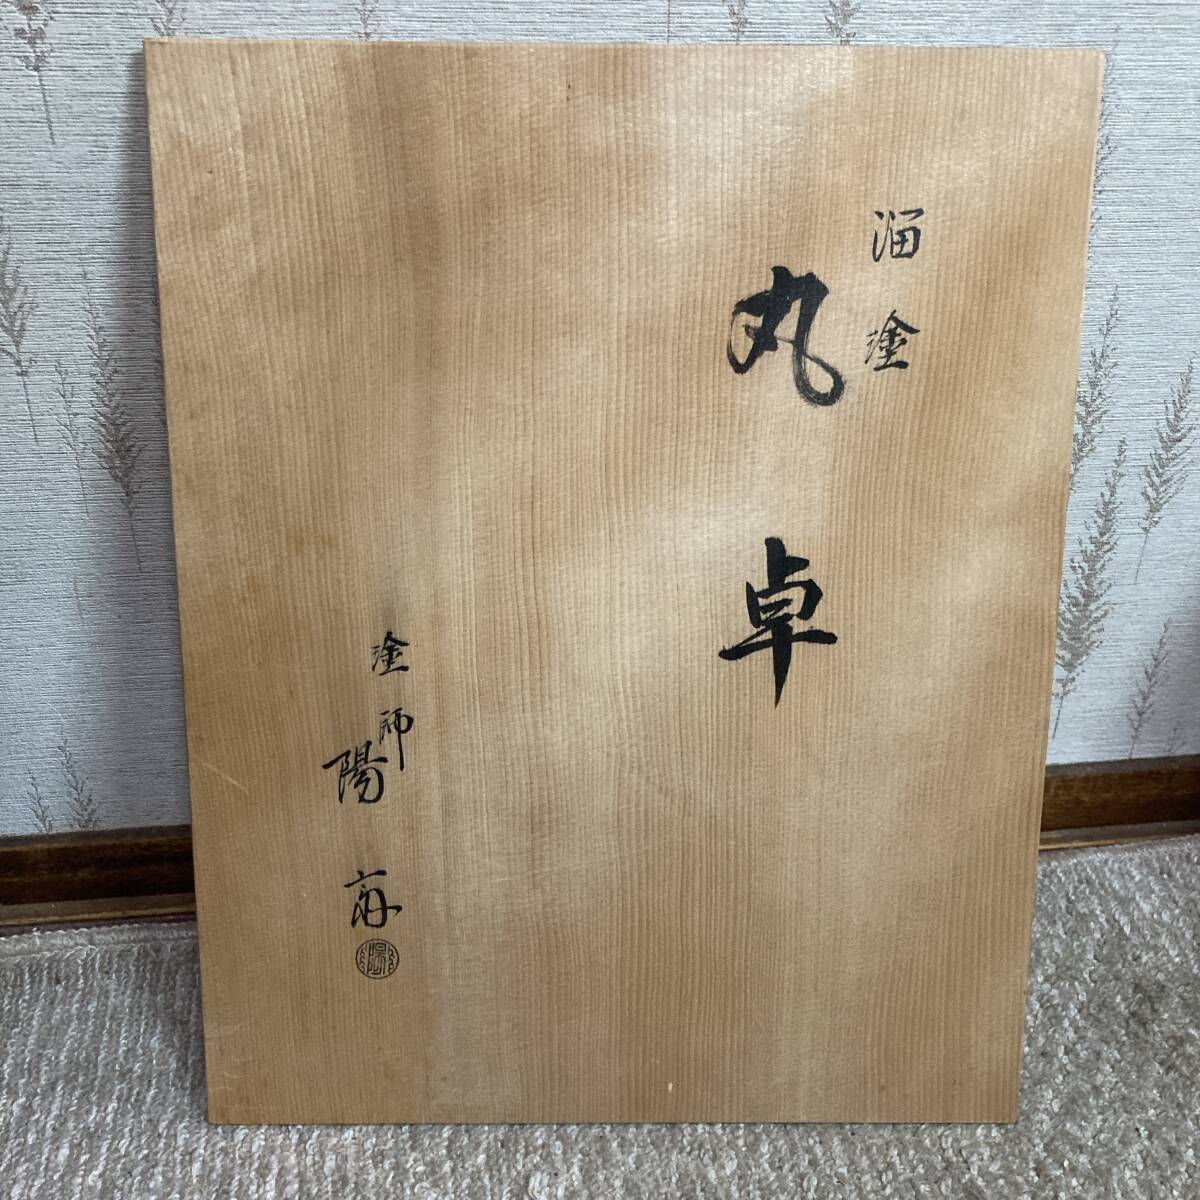 溜塗
丸卓
塗師
陽斎